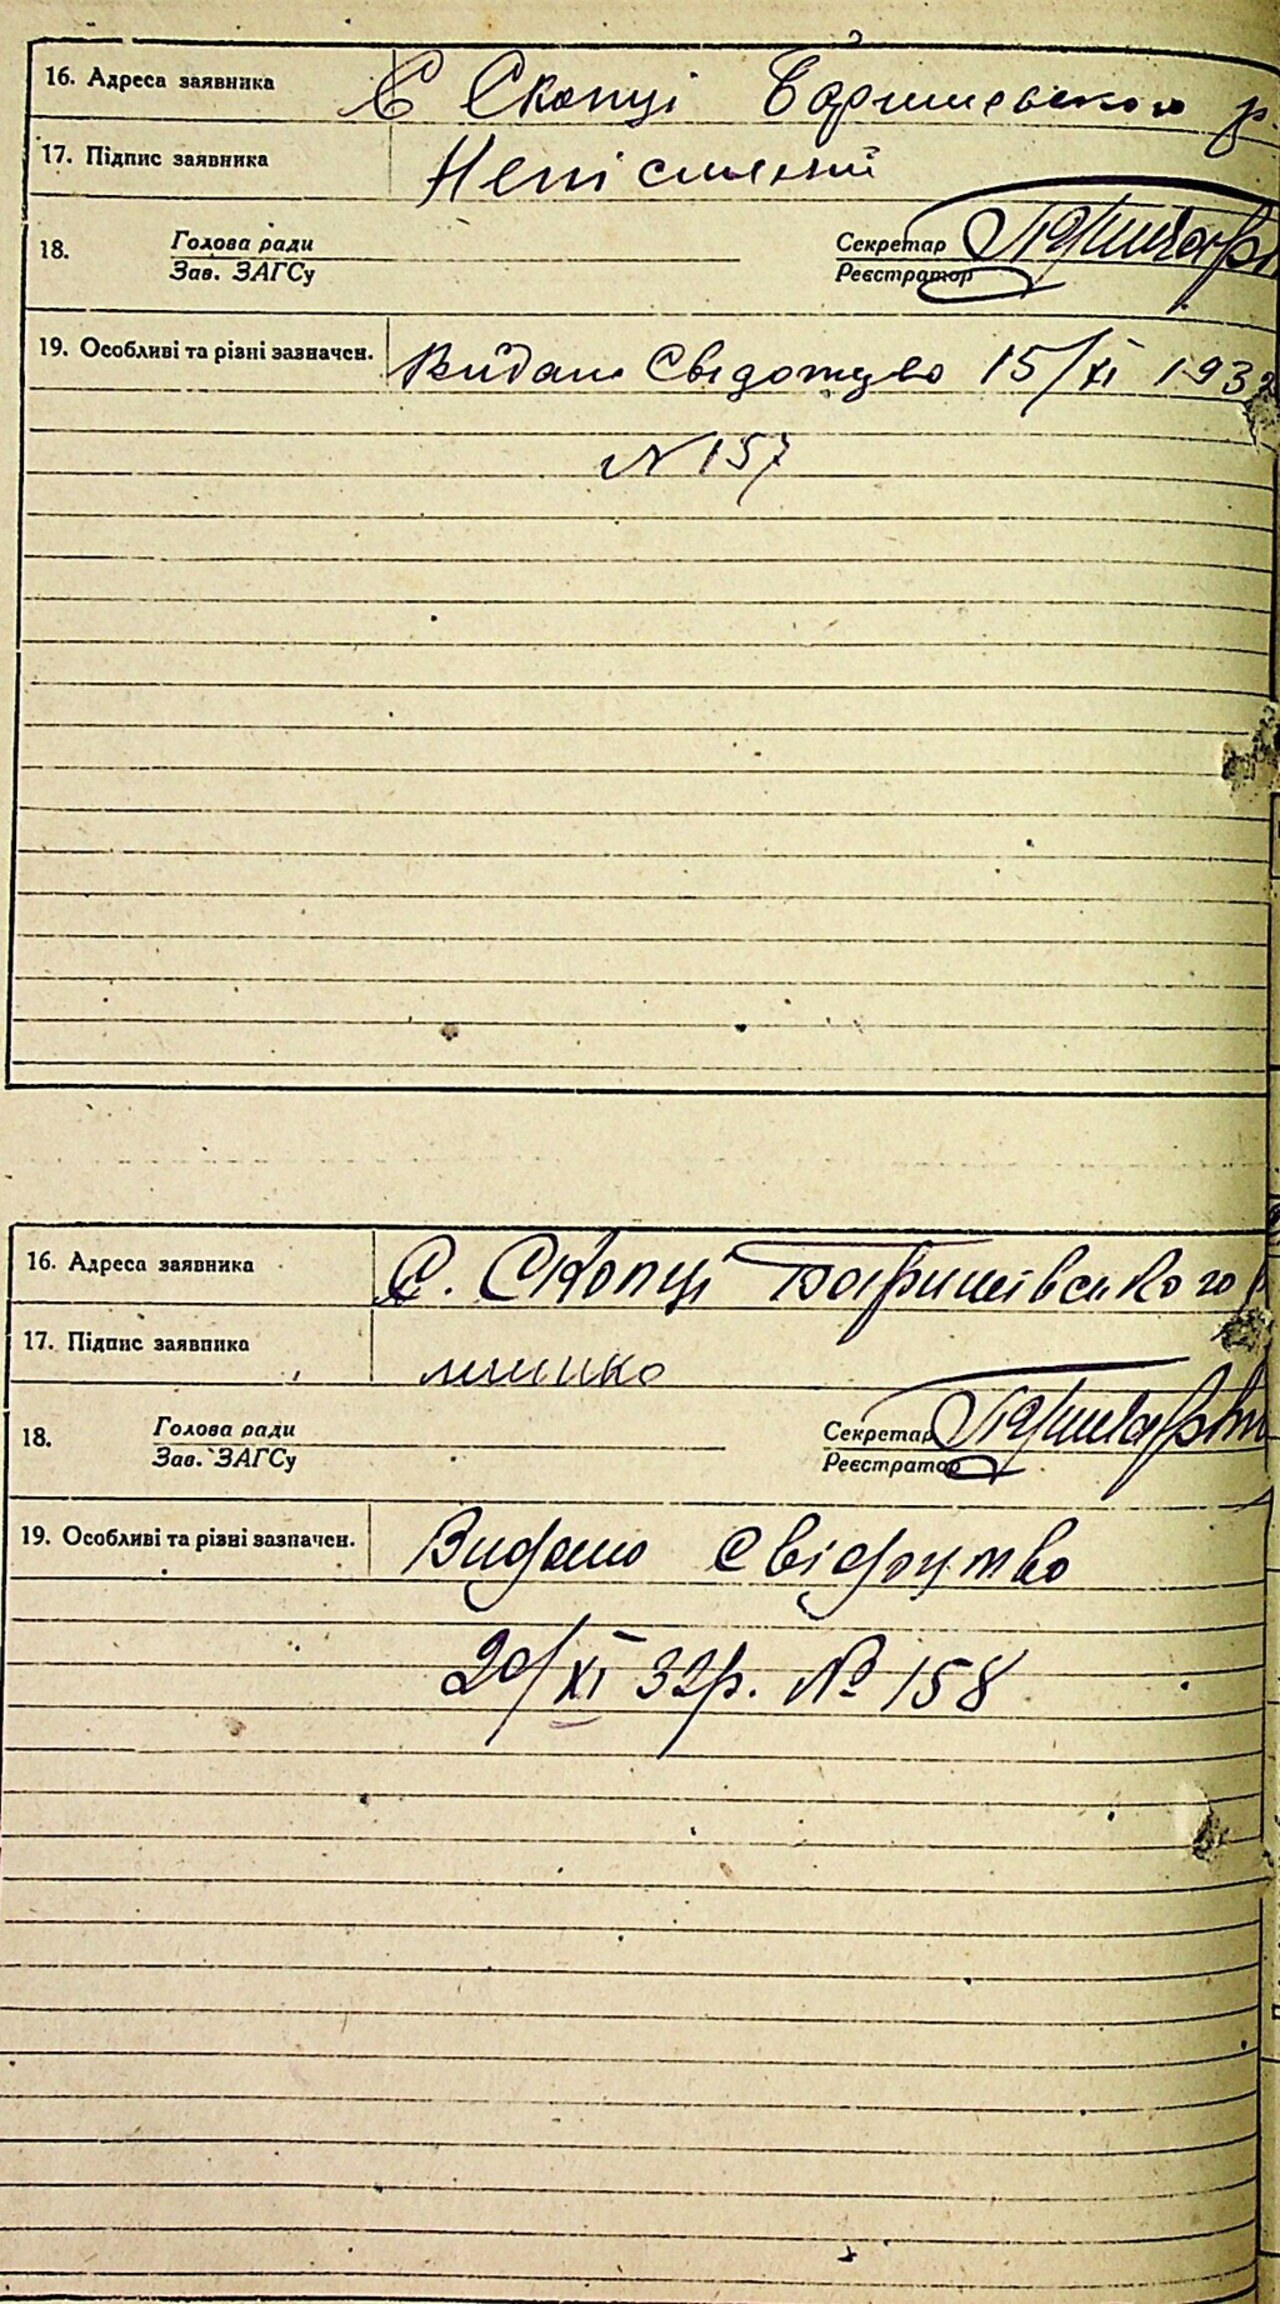 16. Адреса заявника С Скопці Баришевского р.
17. Підпис заявника Непісменій
18. Голова ради Секретар
Зав. ЗАГСу Реєстратор
19. Особливі та різні зазначен. Видано Свідотцво 15/XI 1932
N 157
16. Адреса заявника С. Скопці Баришівського р
17. Підпис заявника
18. Голова ради Секретар
Зав. ЗАГСу Реєстратор
19. Особливі та різні зазначен. Видано Свідоцтво
20/XI 32р. № 158